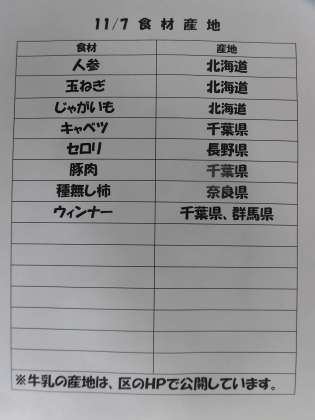 11/7 食材産地
食材 産地
人参 北海道
玉ねぎ 北海道
じゃがいも 北海道
キャベツ 千葉県
セロリ 長野県
豚肉 千葉県
種無し柿 奈良県
ウィンナー 千葉県、群馬県
※牛乳の産地は、区のHPで公開しています。